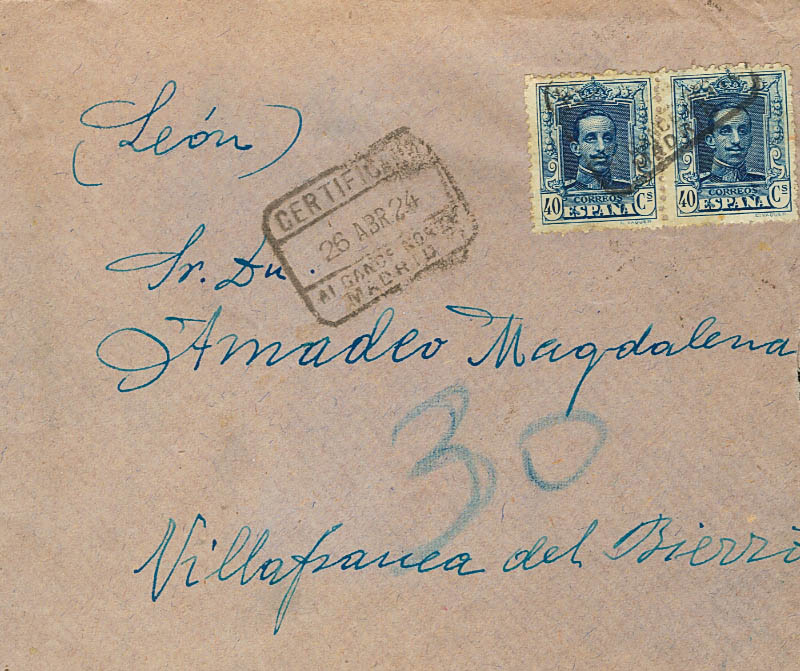 (León)
CERTIFICADO
26 ABR 24
MADRID
CORREOS
40 Cs
ESPAÑA
CORREOS
40 Cs
ESPAÑA
Sr. Dn.
Amadeo Magdalena
30
Villafranca del Bierzo